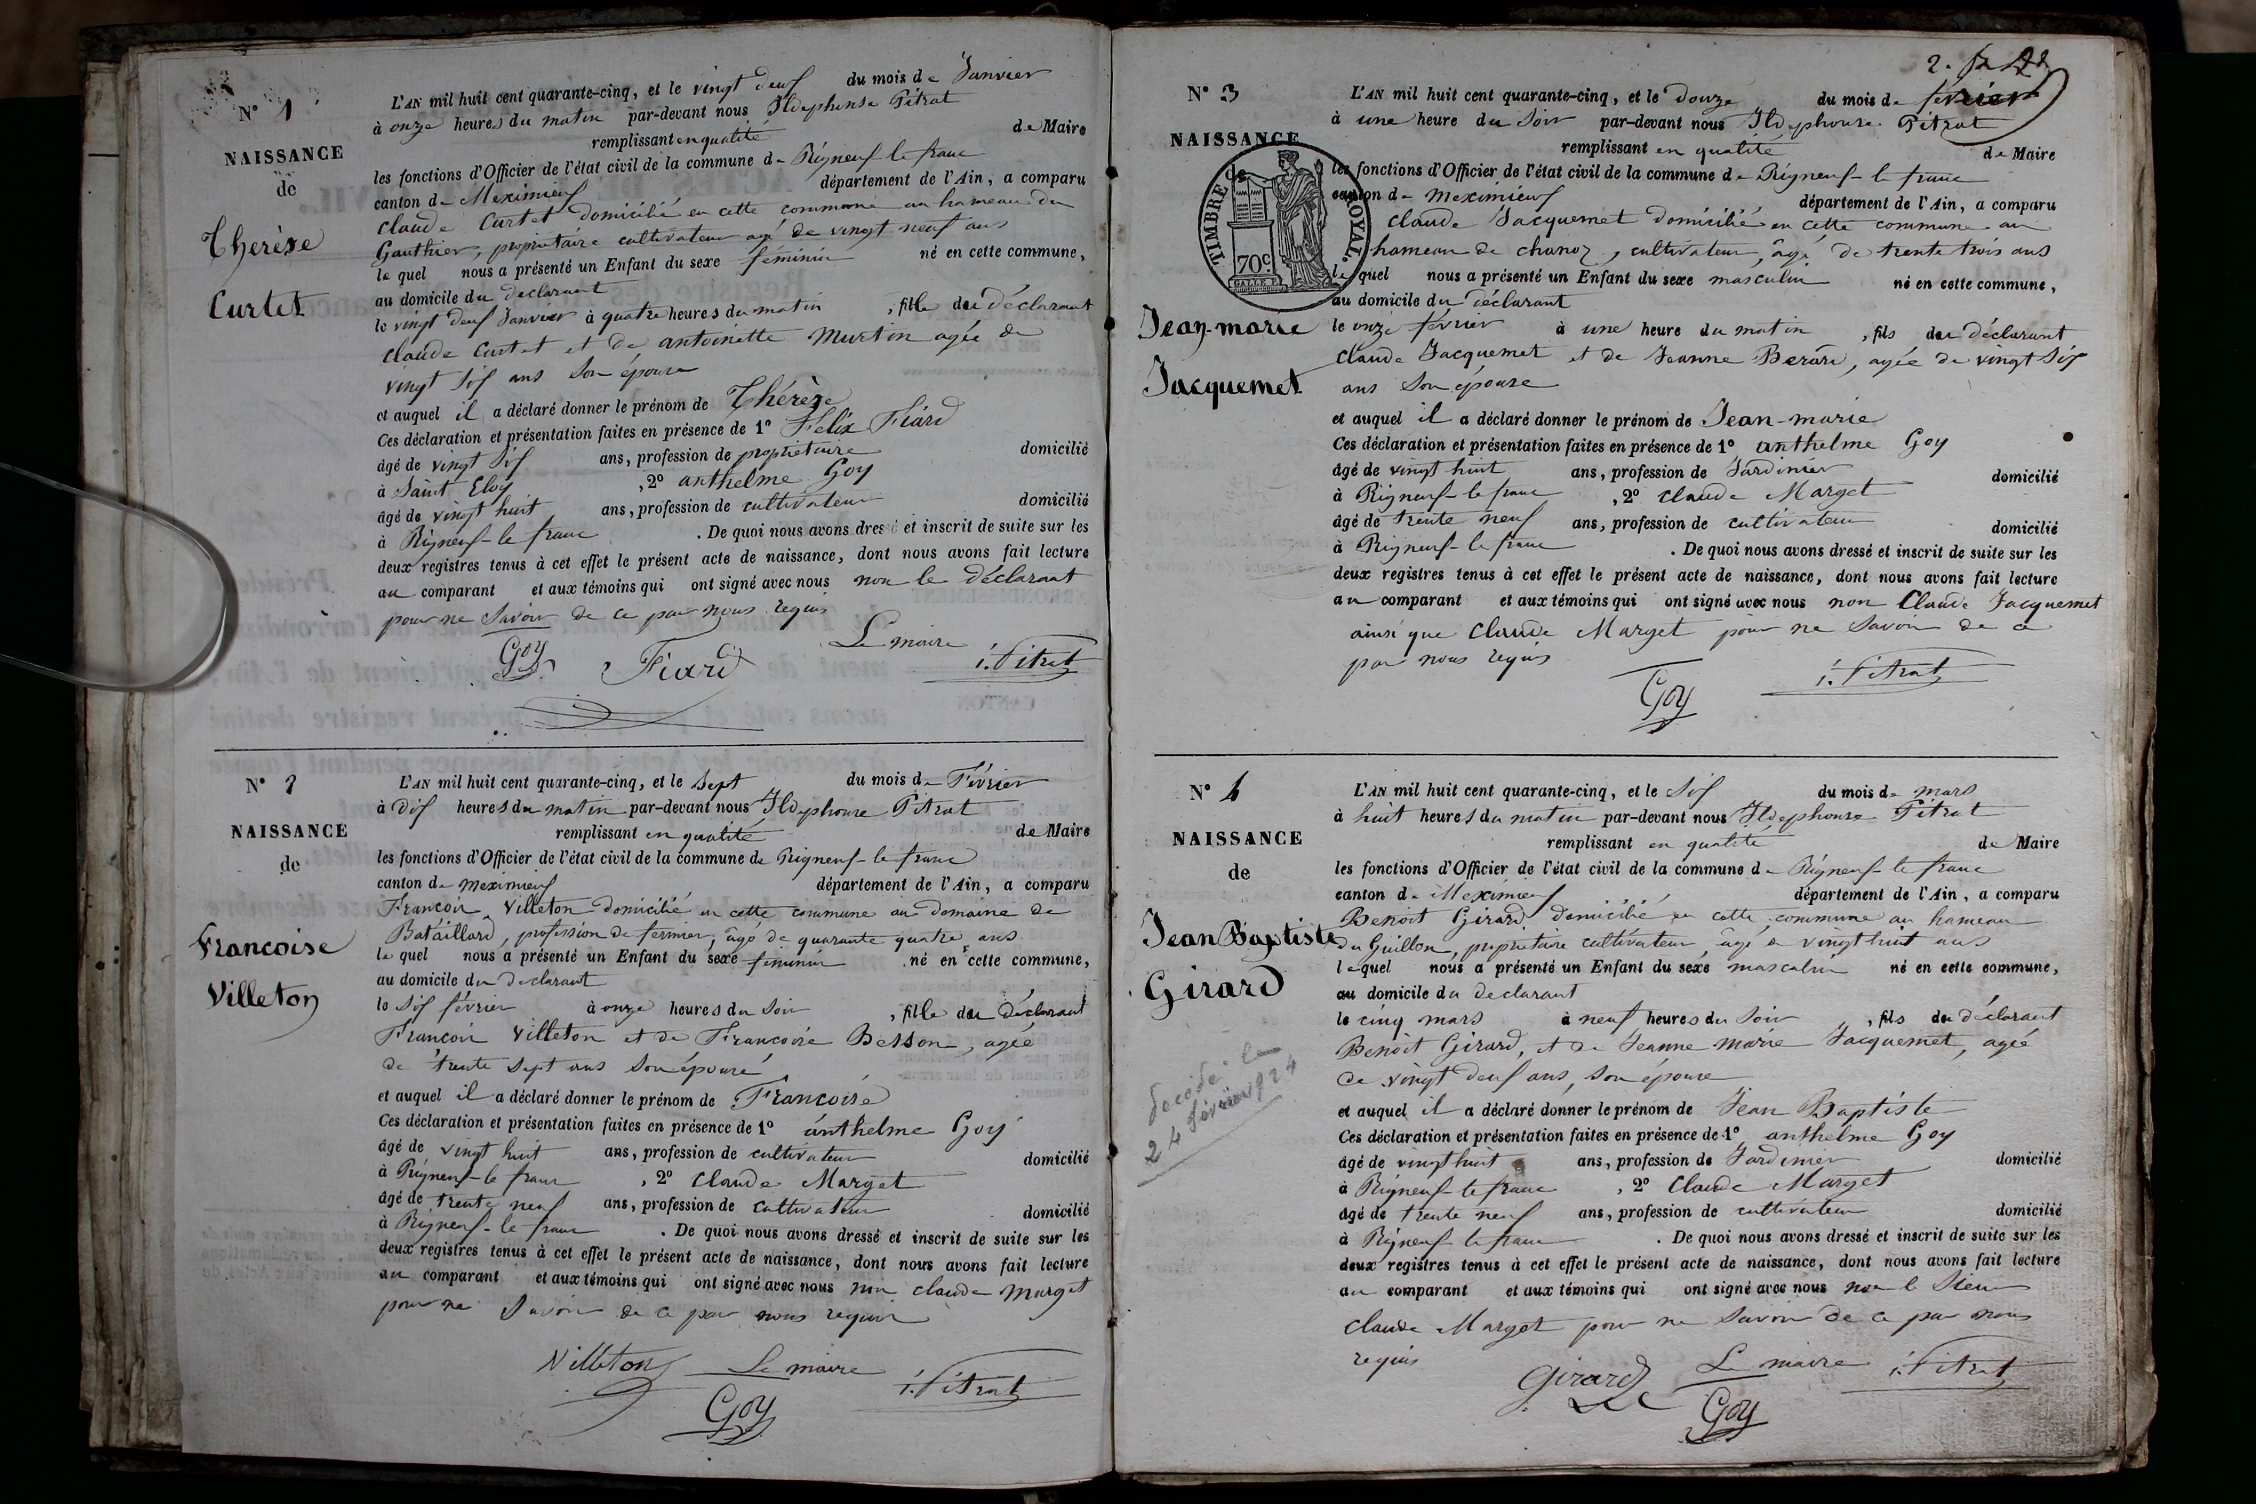 N° 1
NAISSANCE
de
Thérèse
Curtet
L'AN mil huit cent quarante-cinq, et le vingt deux du mois de Janvier
à onze heures du matin par-devant nous Ildephonse Pitrat
remplissant en qualité de Maire
les fonctions d'Officier de l'état civil de la commune de Rigneux-le franc
canton de Meximieux département de l'Ain, a comparu
Claude Curtet domicilié en cette commune au hameau du
Gauthier, propriétaire cultivateur agé de vingt neuf ans
lequel nous a présenté un Enfant du sexe féminin né en cette commune,
au domicile du declarant
le vingt deux Janvier à quatre heures du matin, fille du déclarant
claude Curtet et de antoinette Murtin agée de
vingt six ans son épouse
et auquel il a déclaré donner le prénom de Thérèze
Ces déclaration et présentation faites en présence de 1° Felix Fiard
âgé de vingt six ans, profession de propriétaire domicilié
à Saint Eloy, 2° anthelme Goy
âgé de vingt huit ans, profession de cultivateur domicilié
à Rigneux-le franc. De quoi nous avons dressé et inscrit de suite sur les
deux registres tenus à cet effet le présent acte de naissance, dont nous avons fait lecture
au comparant et aux témoins qui ont signé avec nous non le déclarant
pour ne savoir de ce par nous requis
Le maire
Goy Fiard i. Pitrat
N° 2
NAISSANCE
de
Francoise
Villeton
L'AN mil huit cent quarante-cinq, et le sept du mois de Février
à dix heures du matin par-devant nous Ildephonse Pitrat
remplissant en qualité de Maire
les fonctions d'Officier de l'état civil de la commune de Rigneux-le franc
canton de meximieux département de l'Ain, a comparu
Francois Villeton domicilié en cette commune au domaine de
Bataillard, profession de fermier, âgé de quarante quatre ans
lequel nous a présenté un Enfant du sexe féminin né en cette commune,
au domicile du declarant
le six février à onze heures du soir, fille du déclarant
Francois Villeton et de Francoise Besson, agée
de trente sept ans son épouse
et auquel il a déclaré donner le prénom de Francoise
Ces déclaration et présentation faites en présence de 1° anthelme Goy
âgé de vingt huit ans, profession de cultivateur domicilié
à Rigneux-le franc, 2° Claude Marget
âgé de trente neuf ans, profession de cultivateur domicilié
à Rigneux-le franc. De quoi nous avons dressé et inscrit de suite sur les
deux registres tenus à cet effet le présent acte de naissance, dont nous avons fait lecture
au comparant et aux témoins qui ont signé avec nous non claude Marget
pour ne savoir de ce par nous requis
Villeton Le maire i. Pitrat
Goy
2.
N° 3
NAISSANCE
de
TIMBRE ROYAL
70c
Jean-marie
Jacquemet
L'AN mil huit cent quarante-cinq, et le douze du mois de février
à une heure du soir par-devant nous Ildephonse Pitrat
remplissant en qualité de Maire
les fonctions d'Officier de l'état civil de la commune de Rigneux-le franc
canton de meximieux département de l'Ain, a comparu
claude Jacquemet domicilié en cette commune au
hameau de chanoz, cultivateur, âgé de trente trois ans
lequel nous a présenté un Enfant du sexe masculin né en cette commune,
au domicile du déclarant
le onze février à une heure du matin, fils du déclarant
Claude Jacquemet et de Jeanne Berard, agée de vingt six
ans son épouse
et auquel il a déclaré donner le prénom de Jean-marie
Ces déclaration et présentation faites en présence de 1° anthelme Goy
âgé de vingt huit ans, profession de Jardinier domicilié
à Rigneux-le franc, 2° Claude Marget
âgé de trente neuf ans, profession de cultivateur domicilié
à Rigneux-le franc. De quoi nous avons dressé et inscrit de suite sur les
deux registres tenus à cet effet le présent acte de naissance, dont nous avons fait lecture
au comparant et aux témoins qui ont signé avec nous non Claude Jacquemet
ainsi que Claude Marget pour ne savoir de ce
par nous requis
Goy i. Pitrat
N° 4
NAISSANCE
de
Jean Baptiste
Girard
décédé le
24 février 1924
L'AN mil huit cent quarante-cinq, et le six du mois de mars
à huit heures du matin par-devant nous Ildephonse Pitrat
remplissant en qualité de Maire
les fonctions d'Officier de l'état civil de la commune de Rigneux-le franc
canton de Meximieux département de l'Ain, a comparu
Benoit Girard domicilié en cette commune au hameau
du Guillon, propriétaire cultivateur âgé de vingt huit ans
lequel nous a présenté un Enfant du sexe masculin né en cette commune,
au domicile du declarant
le cinq mars à neuf heures du soir, fils du déclarant
Benoit Girard, et de Jeanne Marie Jacquemet, agée
de vingt deux ans, son épouse
et auquel il a déclaré donner le prénom de Jean Baptiste
Ces déclaration et présentation faites en présence de 1° anthelme Goy
âgé de vingt huit ans, profession de Jardinier domicilié
à Rigneux-le franc, 2° Claude Marget
âgé de trente neuf ans, profession de cultivateur domicilié
à Rigneux-le franc. De quoi nous avons dressé et inscrit de suite sur les
deux registres tenus à cet effet le présent acte de naissance, dont nous avons fait lecture
au comparant et aux témoins qui ont signé avec nous non le Sieur
Claude Marget pour ne savoir de ce par nous
requis
Girard Le maire i. Pitrat
Goy